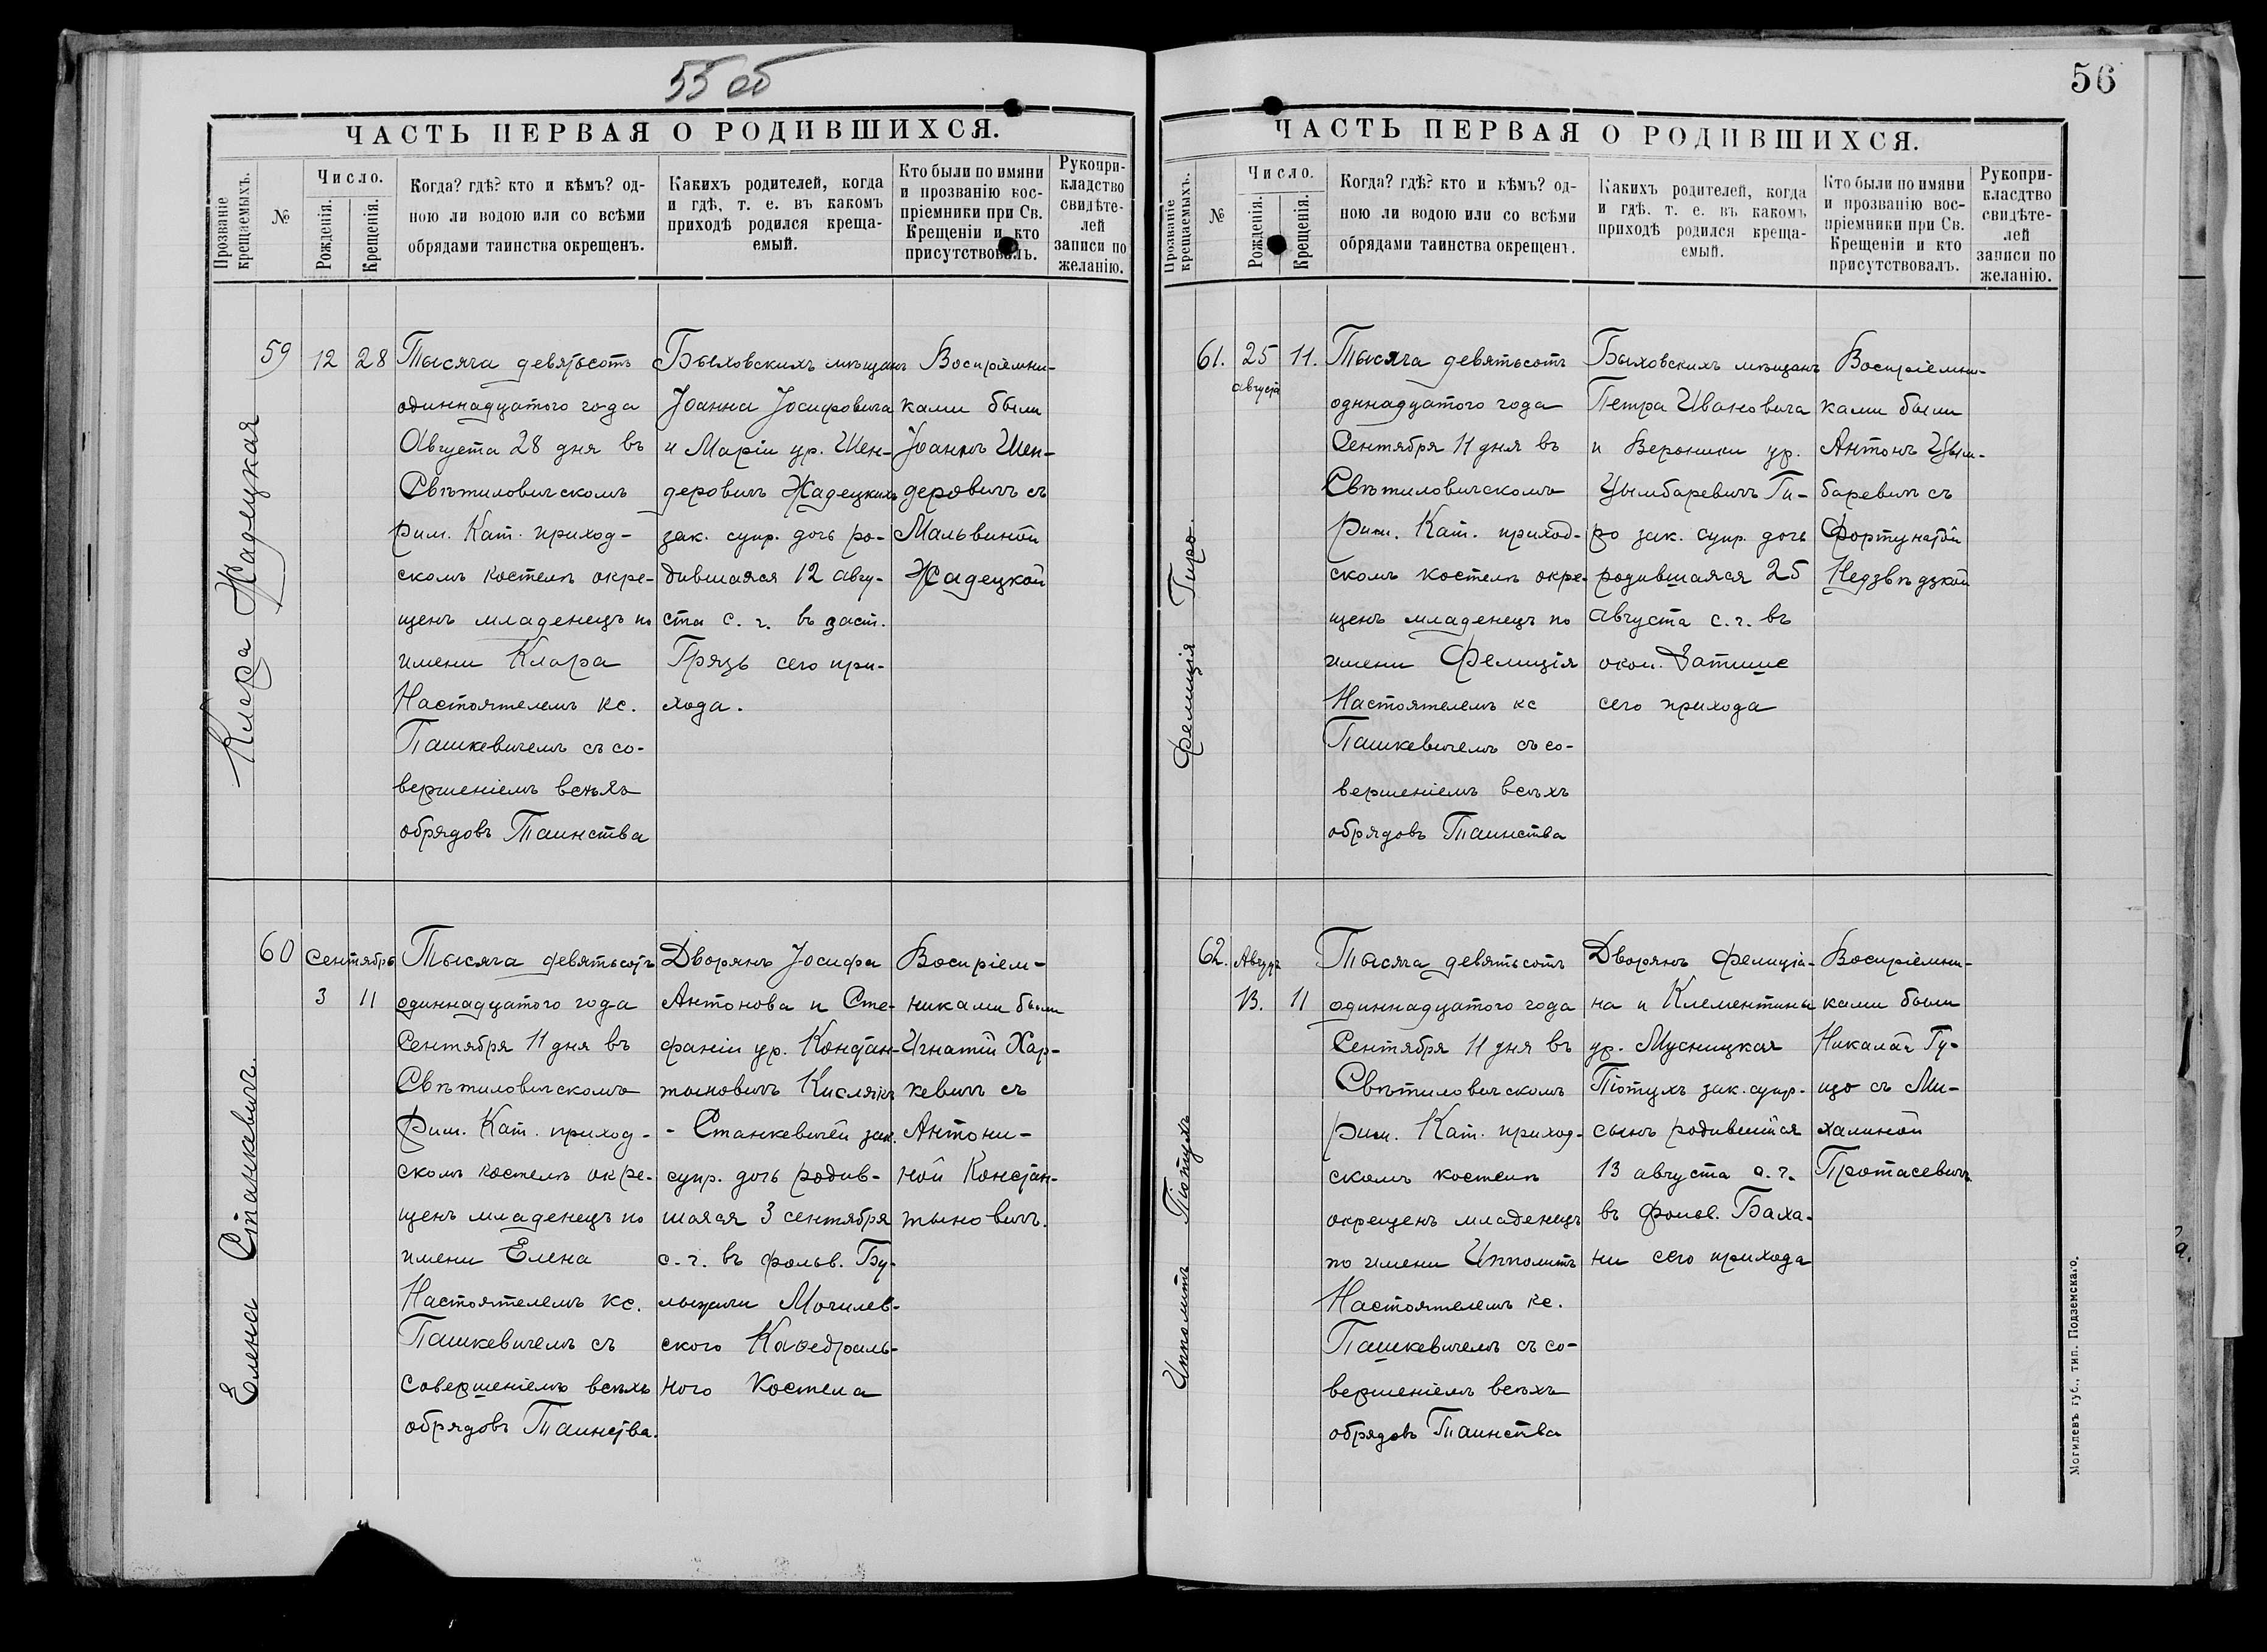 55 об
ЧАСТЬ ПЕРВАЯ О РОДИВШИХСЯ.
Прозваніе крещаемыхъ.
№
Число.
Рожденія.
Крещенія.
Когда? гдѣ? кто и кѣмъ? од-
ною ли водою или со всѣми
обрядами таинства окрещенъ.
Какихъ родителей, когда
и гдѣ, т. е. въ какомъ
приходѣ родился креща-
емый.
Кто были по имяни
и прозванію вос-
пріемники при Св.
Крещеніи и кто
присутствовалъ.
Рукопри-
кладство
свидѣте-
лей
записи по
желанію.
Клара Жадецкая
59
12
28
Тысяча девятьсотъ
одиннадцатого года
Августа 28 дня въ
Свѣтиловичскомъ
Рим. Кат. приход-
скомъ костелѣ окре-
щенъ младенецъ по
имени Клара
Настоятелемъ кс.
Пашкевичемъ съ со-
вершеніемъ всѣхъ
обрядовъ Таинства
Быховскихъ мѣщанъ
Іоанна Іосифовича
и Маріи ур. Шен-
деровичъ Жадецкихъ
зак. супр. дочь ро-
дившаяся 12 авгу-
ста с. г. въ заст.
Грязь сего при-
хода.
Воспріемни-
ками были
Іоаннъ Шен-
деровичъ съ
Мальвиной
Жадецкой
Елена Станкевичъ.
60
Сентября
3
11
Тысяча девятьсотъ
одиннадцатого года
Сентября 11 дня въ
Свѣтиловичскомъ
Рим. Кат. приход-
скомъ костелѣ окре-
щенъ младенецъ по
имени Елена
Настоятелемъ кс.
Пашкевичемъ съ
совершеніемъ всѣхъ
обрядовъ Таинства.
Дворянъ Іосифа
Антонова и Сте-
фаніи ур. Констан-
тыновичъ Кислякъ
- Станкевичей зак.
супр. дочь родив-
шаяся 3 сентября
с. г. въ фольв. Бу-
Могилев-
ского Каѳедраль-
ного Костела
Воспріем-
никами были
Игнатій Хар-
кевичъ съ
Антони-
ной Констан-
тыновичъ.
56
ЧАСТЬ ПЕРВАЯ О РОДИВШИХСЯ.
Прозваніе крещаемыхъ.
№
Число.
Рожденія.
Крещенія.
Когда? гдѣ? кто и кѣмъ? од-
ною ли водою или со всѣми
обрядами таинства окрещенъ.
Какихъ родителей, когда
и гдѣ. т. е. въ какомъ
приходѣ родился креща-
емый.
Кто были по имяни
и прозванію вос-
пріемники при Св.
Крещеніи и кто
присутствовалъ.
Рукопри-
класдтво
свидѣте-
лей
записи по
желанію.
Фелиція Гиро
61.
25
августа
11.
Тысяча девятьсотъ
одннадцатого года
Сентября 11 дня въ
Свѣтиловичскомъ
Рим. Кат. приход-
скомъ костелѣ окре-
щенъ младенецъ по
имени Фелиція
Настоятелемъ кс
Пашкевичемъ съ со-
вершеніемъ всѣхъ
обрядовъ Таинства
Быховскихъ мѣщанъ
Петра Ивановича
и Вероники ур.
Цымбаревичъ Ги-
ро зак. супр. дочь
родившаяся 25
августа с. г. въ
окол. Затише
сего прихода
Воспріемни-
ками были
Антонъ Цым-
баревичъ съ
Фортунатой
Недзвѣдзкой
Ипполитъ Піотухъ
62.
Август
13.
11
Тысяча девятьсотъ
одиннадцатого года
Сентября 11 дня въ
Свѣтиловичскомъ
рим. Кат. приход-
скомъ костелѣ
окрещенъ младенецъ
по имени Ипполитъ
Настоятелемъ кс.
Пашкевичемъ съ со-
вершеніемъ всѣхъ
обрядовъ Таинства
Дворянъ Фелиціа-
на и Клементины
ур. Мусницкая
Піотухъ зак. супр.
сынъ родившійся
13 августа с. г.
въ фольв. Баха-
ни сего прихода
Воспріемни-
ками были
Николай Гу-
що съ Ми-
халиной
Протасевичъ
Могилевъ губ., тип. Подземскаго.